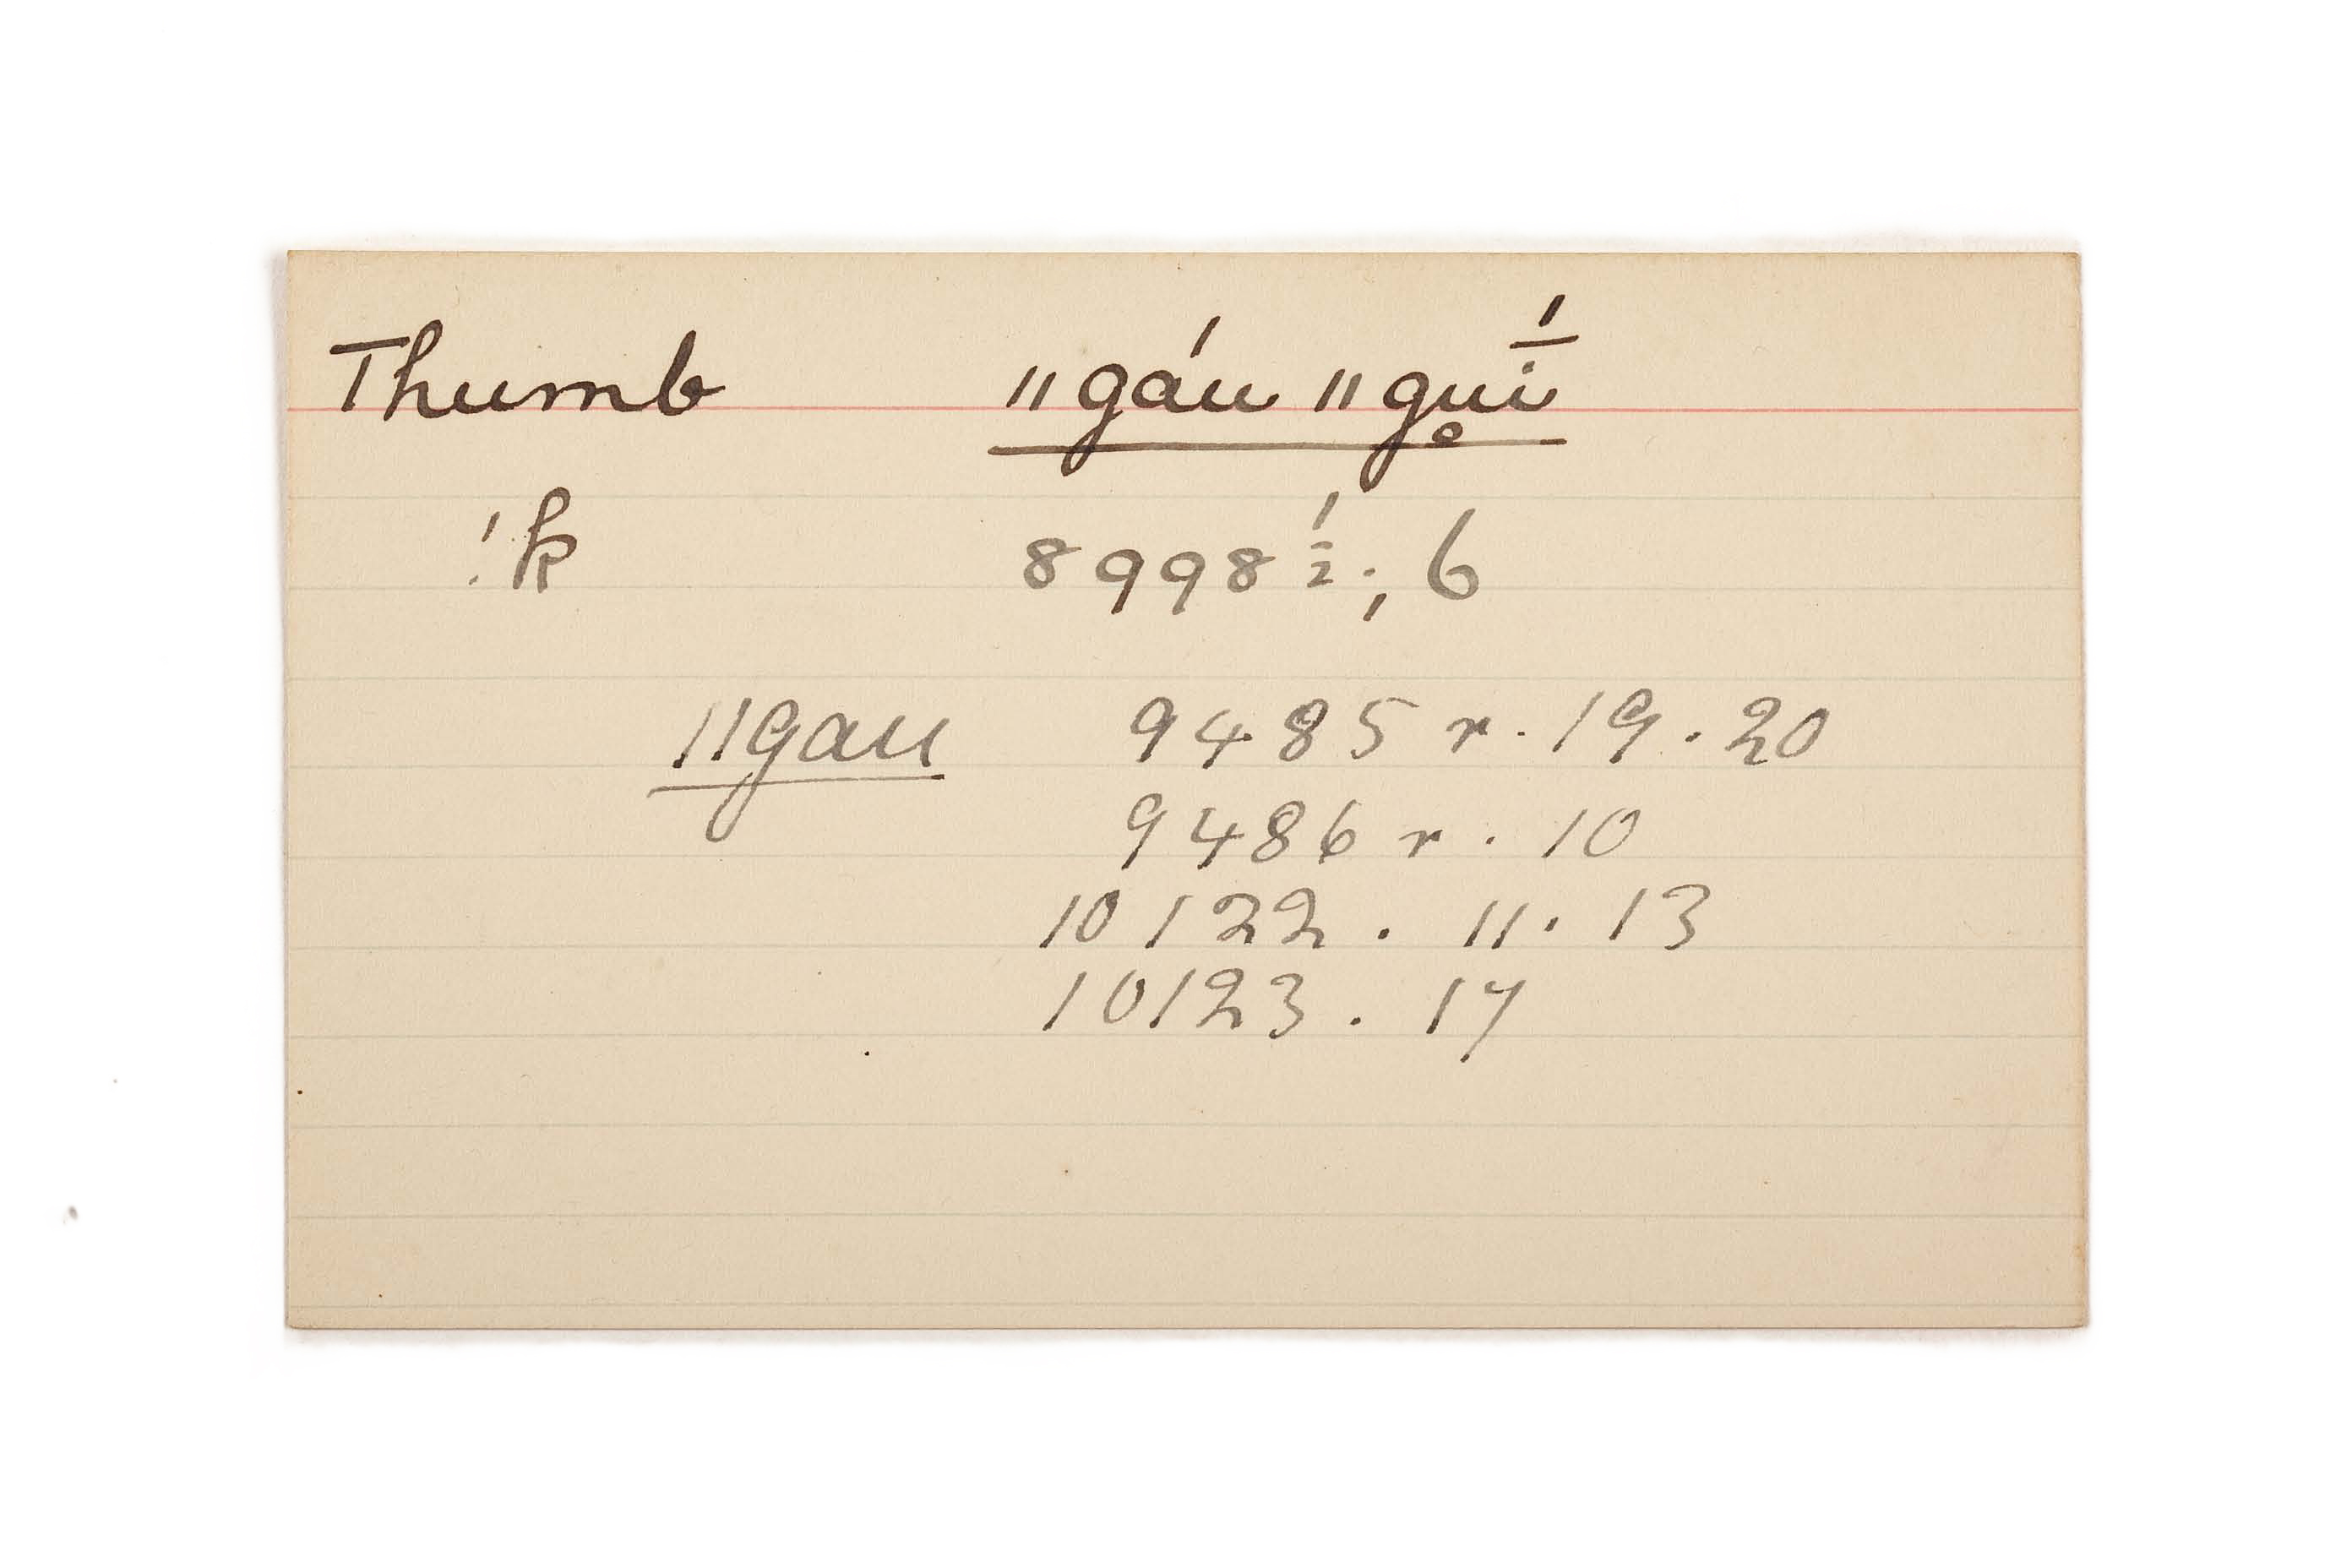 Thumb ǁgáu ǁgu̥ḯ̄
!k 8998½; 6
ǁgau 9485 r. 19. 20
9486 r. 10
10122. 11. 13
10123. 17